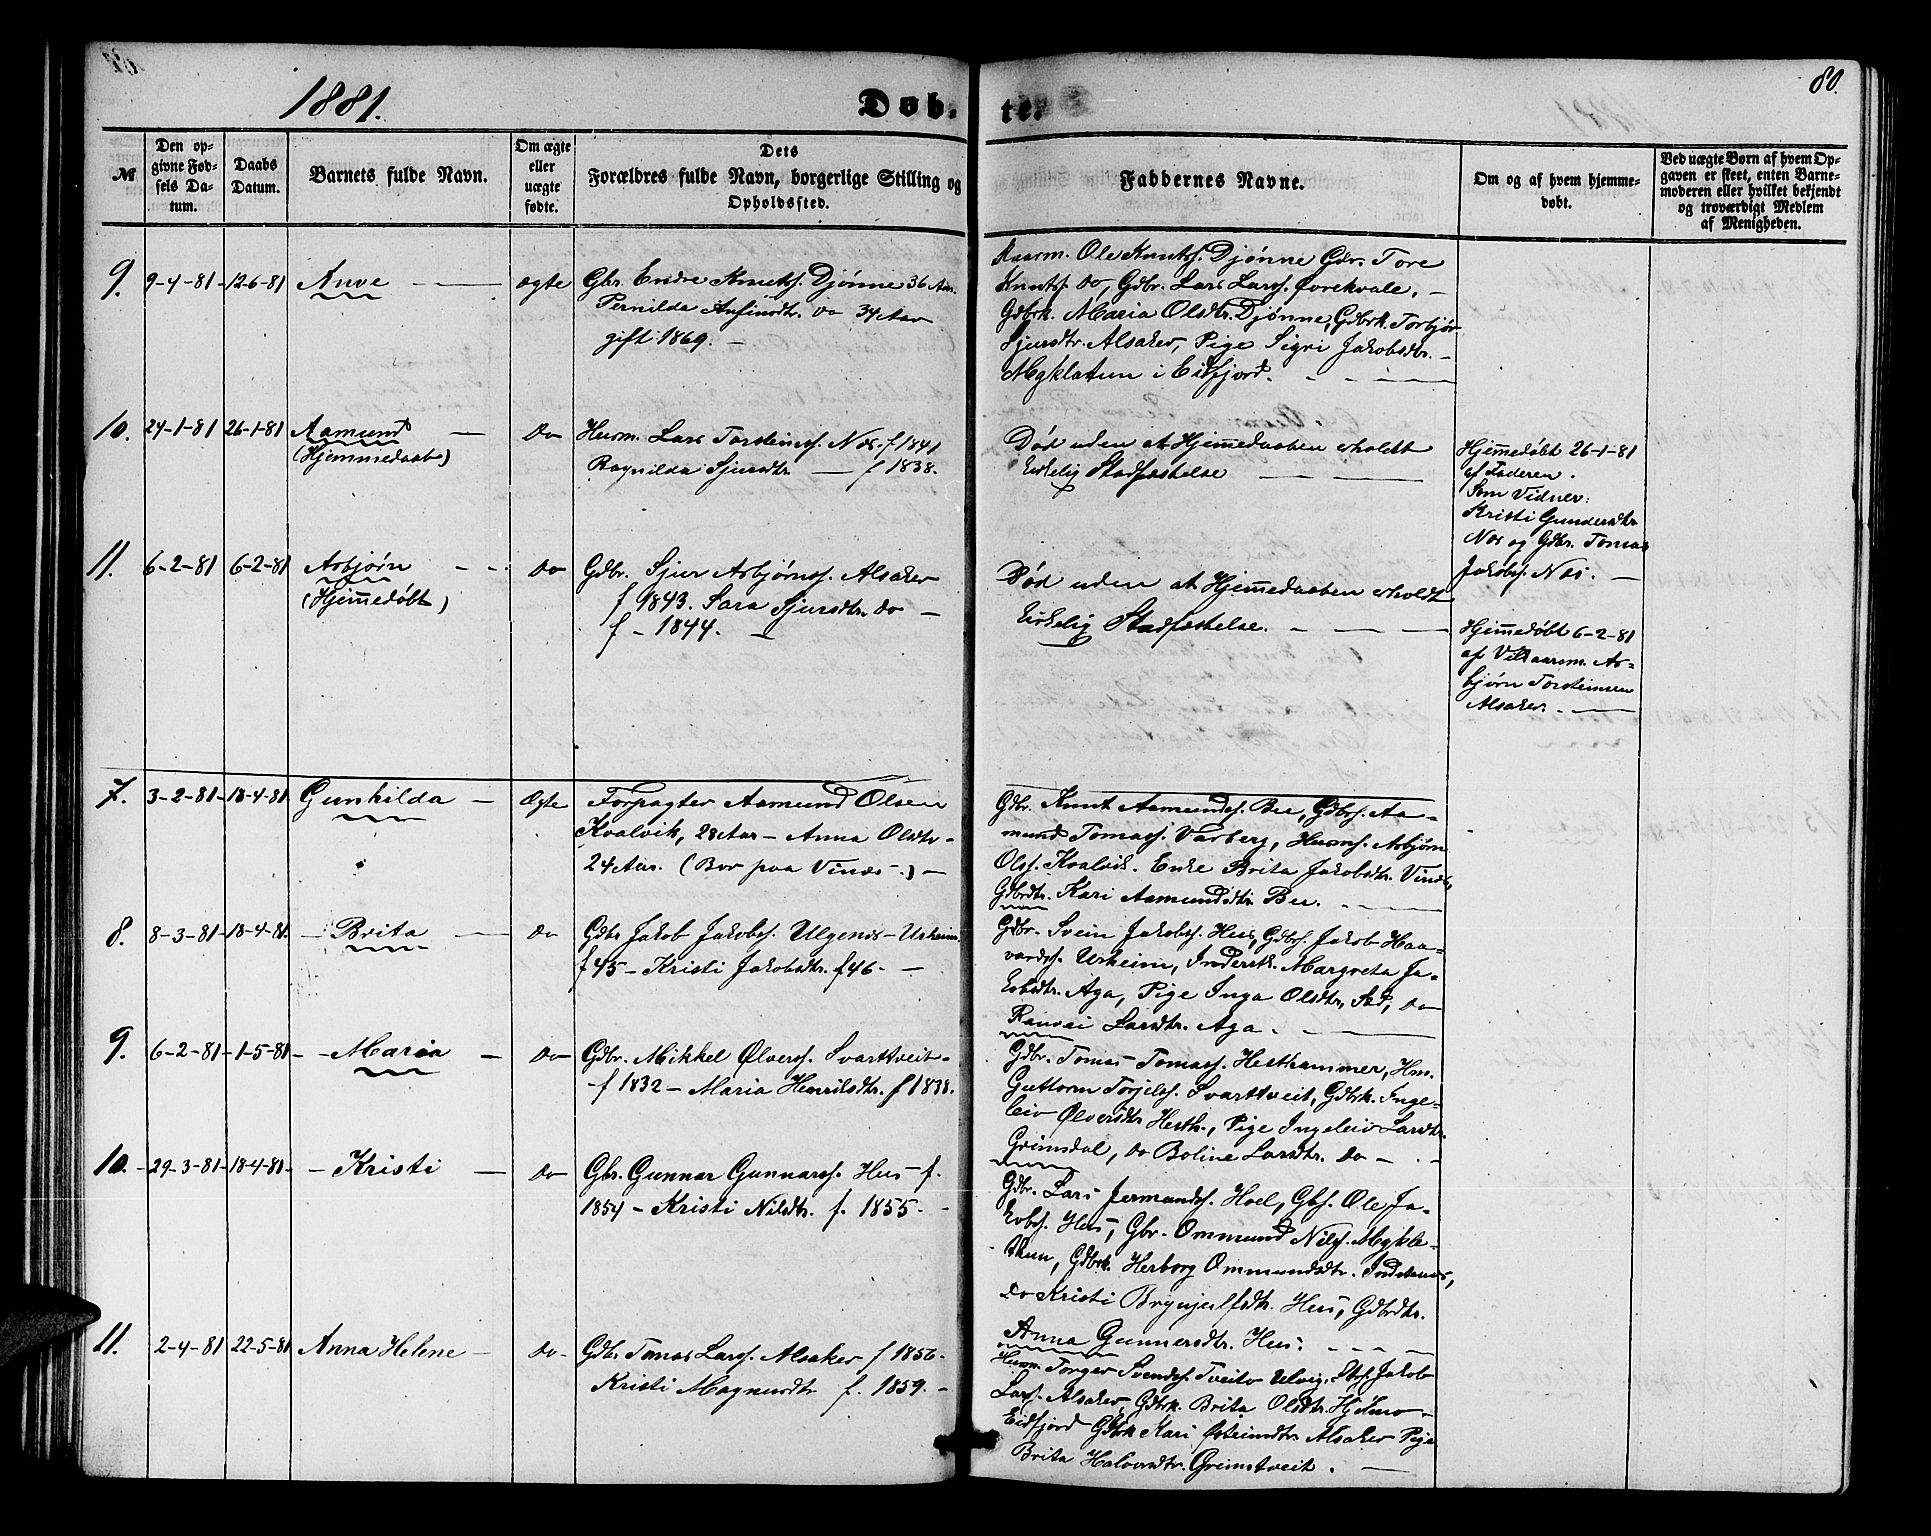 1881.
Døb-
te.
80.
№
Den op-
givne Fød-
sels Da-
tum.
Daabs
Datum.
Barnets fulde Navn.
Om ægte
eller
uægte
fødte.
Dets
Forældres fulde Navn, borgerlige Stilling og
Opholdssted.
Faddernes Navne.
Om og af hvem hjemme-
døbt.
Ved uægte Børn af hvem Op-
gaven er skeet, enten Barne-
moderen eller hvilket bekjendt
og troværdigt Medlem
af Menigheden.
9. 9-4-81 12-6-81 Anve ægte
Gbr. Endre Knutss. Djønne 36 Aar.
Pernilda Anfinsdtr. do 34 Aar
gift 1869.
Kaarm. Ole Knutss. Djønne Gdr. Tore
Knutss do, Gdbr. Lars Larss.
Gdbrk. Maria Olsdtr. Djønne, Gdbrk. Torbjør
Sjursdtr. Alsaker, Pige Sigri Jakobsdtr.
Myklatun i Eidfjord.
10. 24-1-81 26-1-81 Aamund
(Hjemmedaab)
do
Husm. Lars Torsteinss. Næs. f 1841
Ragnilda Sjursdtr. f 1838.
Død uden at Hjemmedaaben erholdt
kirkelig Stadfæstelse
Hjemedøbt 26-1-81
af Faderen.
Som Vidner:
Kristi Gundersdtr
Næs og Gdbr. Tomas
Jakobss. Næs.
11. 6-2-81 6-2-81 Asbjørn
(Hjemedøbt)
do
Gdbr. Sjur Asbjørnss. Alsaker
f 1843. Sara Sjursdtr. do
f - 1844.
Død uden at Hjemedaaben erholdt
kirkelig Stadfæstelse.
Hjemedøbt 6-2-81
af Vilkaarsm. As-
bjørn Torsteinsen
Alsaker.
7. 3-2-81 18-4-81 Gunhilda Ægte
Forpagter Aamund Olsen
Kvalvik, 28 Aar - Anna Olsdtr
24 Aar. (Bor paa Vinæs.)
Gdbr. Knut Aamundss. Bu, Gdbrs. Aa-
mund Tomass. Varberg, Husms. Asbjørn
Olss. Kvalvik. Enke Brita Jakobsdtr. Vinæs,
Gdbrdtr. Kari Aamundsdtr Bu.
8. 8-3-81 18-4-81. Brita do
Gdbr Jakob Jakobss. Ulgenes - Urheim.
f 45 - Kristi Jakobsdtr. f 46.
Gdbr. Svein Jakobss. Hus, Gdbrs. Jakob Haa-
vardss. Urheim, Inderstk. Margreta Ja-
kobsdtr. Aga, Pige Inga Olsdtr. do
Ranvei Larsdtr. Aga.
9. 6-2-81 1-5-81 Maria do
Gdbr. Mikkel Ølverss. Svarttveit
f 1832 - Maria Henriksdtr. f 1838.
Gdbr. Tomas Tomass. Hesthammer, Hm.
Guttorm Torjelss. Svarttveit, Gdbrk. Inge-
leiv Ølversdtr Hesth., Pige Ingeleiv Larsdtr.
Grimsdal, do Boline Larsdtr. do
10. 29-3-81 18-4-81 Kristi do
Gbr. Gunnar Gunnarss. Hus - f.
1854 - Kristi Nilsdtr. f. 1855.
Gdbr. Lars Jermundss. Hoel, Gbs. Ole Ja-
kobss. Hus, Gbr. Ommund Nilss. Mykle-
thun, Gdbrk. Herborg Ommundsdtr.
do Kristi Brynjulfsdtr. Hus, Gdbrdtr.
Anna Gunnersdtr. Hus.
11. 2-4-81 22-5-81 Anna Helene do
Gdbr Tomas Larss. Alsaker f 1856
Kristi Magnusdtr f. 1859.
Husm. Torger Svendss. Tveito Ulvig, Jakob
Larss. Alsaker, Gdbrk. Brita Olsdtr. Hjelmo
Eidfjord Gdbrk Kari Østeinsdtr. Alsaker Pige
Brita Halvorsdtr. Grimstveit.